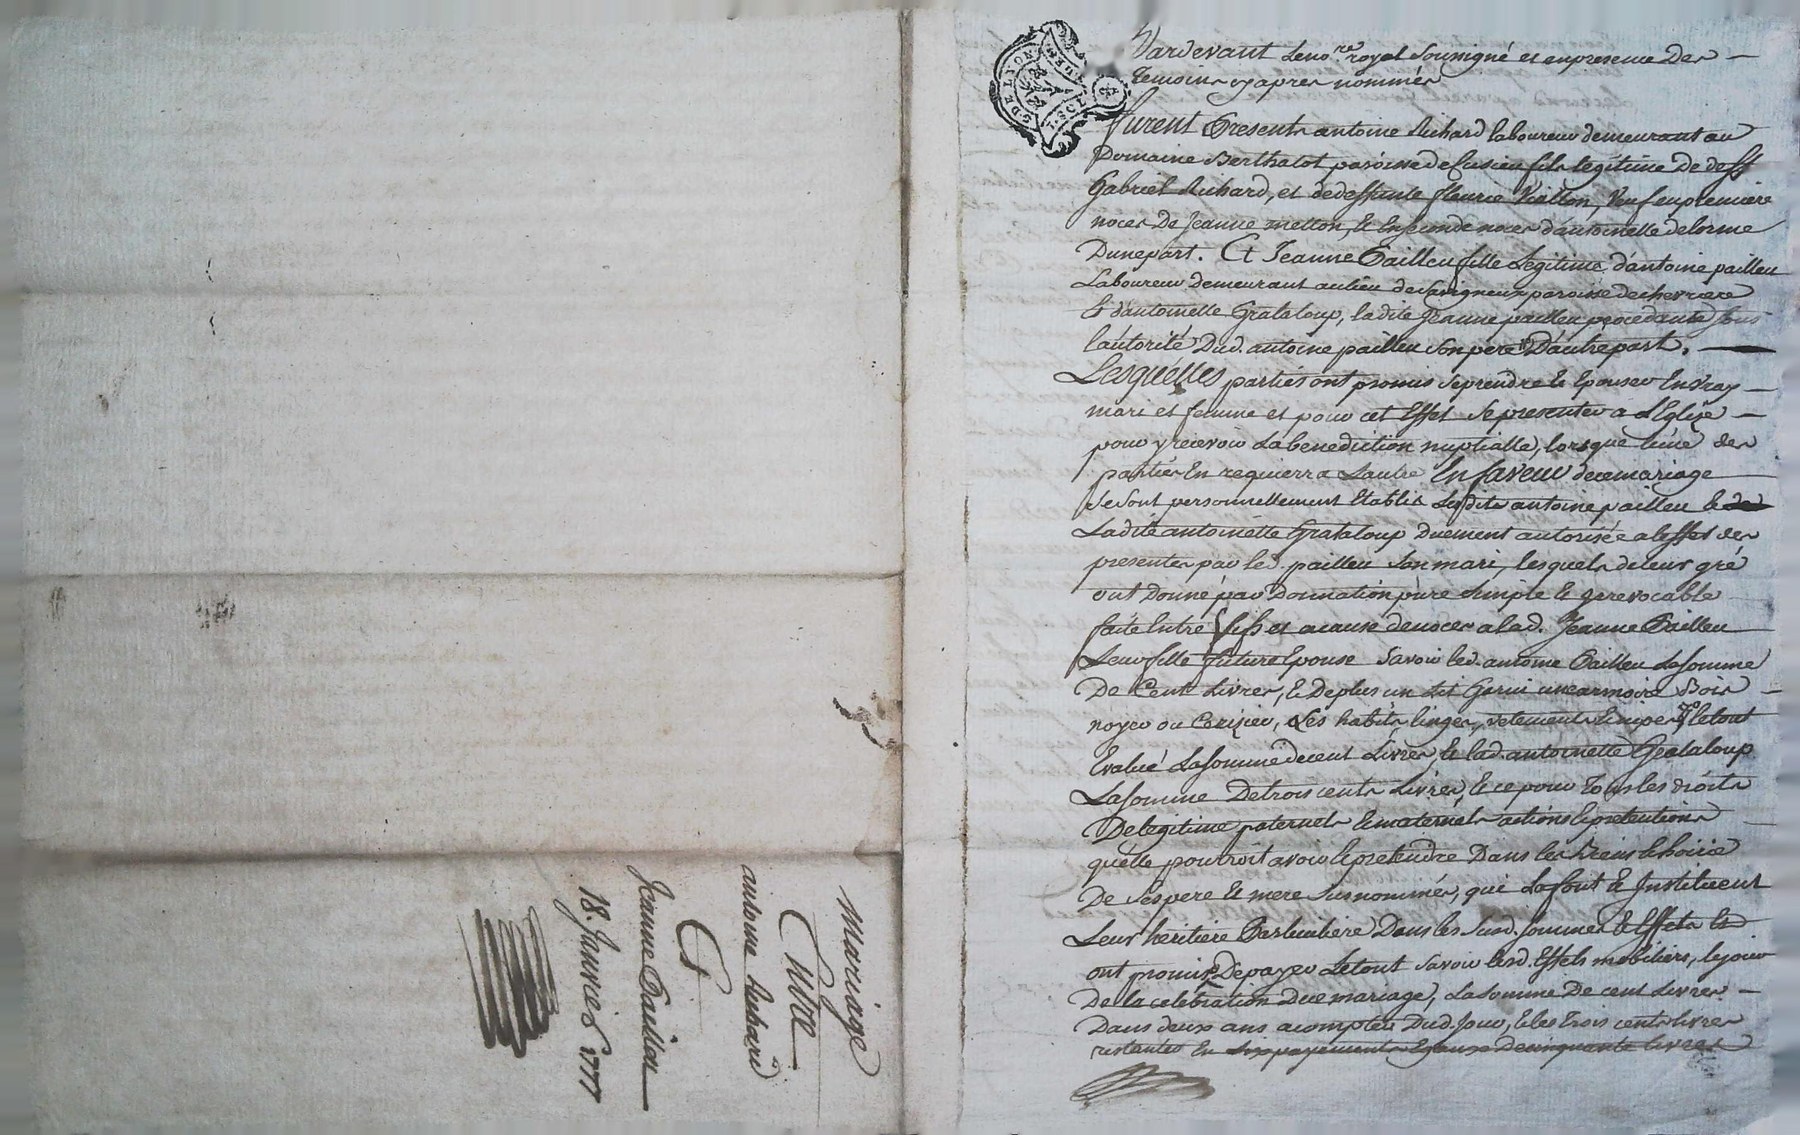 mariage
Entre
antoine Richard
Et
Jeanne Pailleu
18. Janvier 1777
Pardevant Le no.re royal soussigné et en presence Des
temoins cy apres nommés
furent Presents antoine Richard laboureur demeurant au
Domaine Berthalot, paroisse de Cusieu fils legitime de deff
Gabriel Richard, et de deffunte fleurie Viallon, Veuf en premiere
noces De Jeanne mellon, Et En seconde noces d'antoinette delorme
D'une part. Et Jeanne Pailleu fille Legitime d'antoine pailleu
Laboureur demeurant au lieu de Savigneux paroisse de chevriere
Et d'antoinette Grataloup, ladite Jeanne pailleu procedante sous
l'autorité Dud. antoine pailleu son pere D'autre part.
Lesquelles parties ont promis se prendre Et Epouser En vray
mari et femme et pour cet Effet se presenter a L'Eglise
pour y recevoir La benediction nuptialle, lorsque l'une des
parties En requierra L'autre En faveur de ce mariage
se sont personnellement Etablis Lesdits antoine pailleu Et
Ladite antoinette Grataloup Duement autorisée a l'effet des
presentes par led. pailleu son mari, lesquels de leur gré
ont Donné par Donnation pure simple Et irrevocable
faite Entre vifs et a cause de noces a lad. Jeanne Pailleu
Leur fille future Epouse savoir led. antoine Pailleu La somme
De Cent Livres, Et De plus un Lit Garni une armoire Bois
noyer ou Cerizier, Les habits linges, vetements Et nipes le tout
Evalué La somme de cent Livres, Et lad. antoinette Grataloup
La somme De trois cents Livres, Et ce pour Tous les droits
De legitime paternels Et maternels actions Et pretentions
qu'elle pourroit avoir Et pretendre Dans les Biens Et hoirie
De ses pere Et mere susnommés, qui La font Et Instituent
Leur heritiere Particuliere Dans les susd. sommes Et Effets Et
ont promis De payer Le tout savoir lesd. Effets mobiliers, le jour
De la celebration Du d mariage, La somme De cent Livres
Dans deux ans a compter Dud. Jour, Et les trois cents livres
restantes En six payements Egaux De cinquante livres